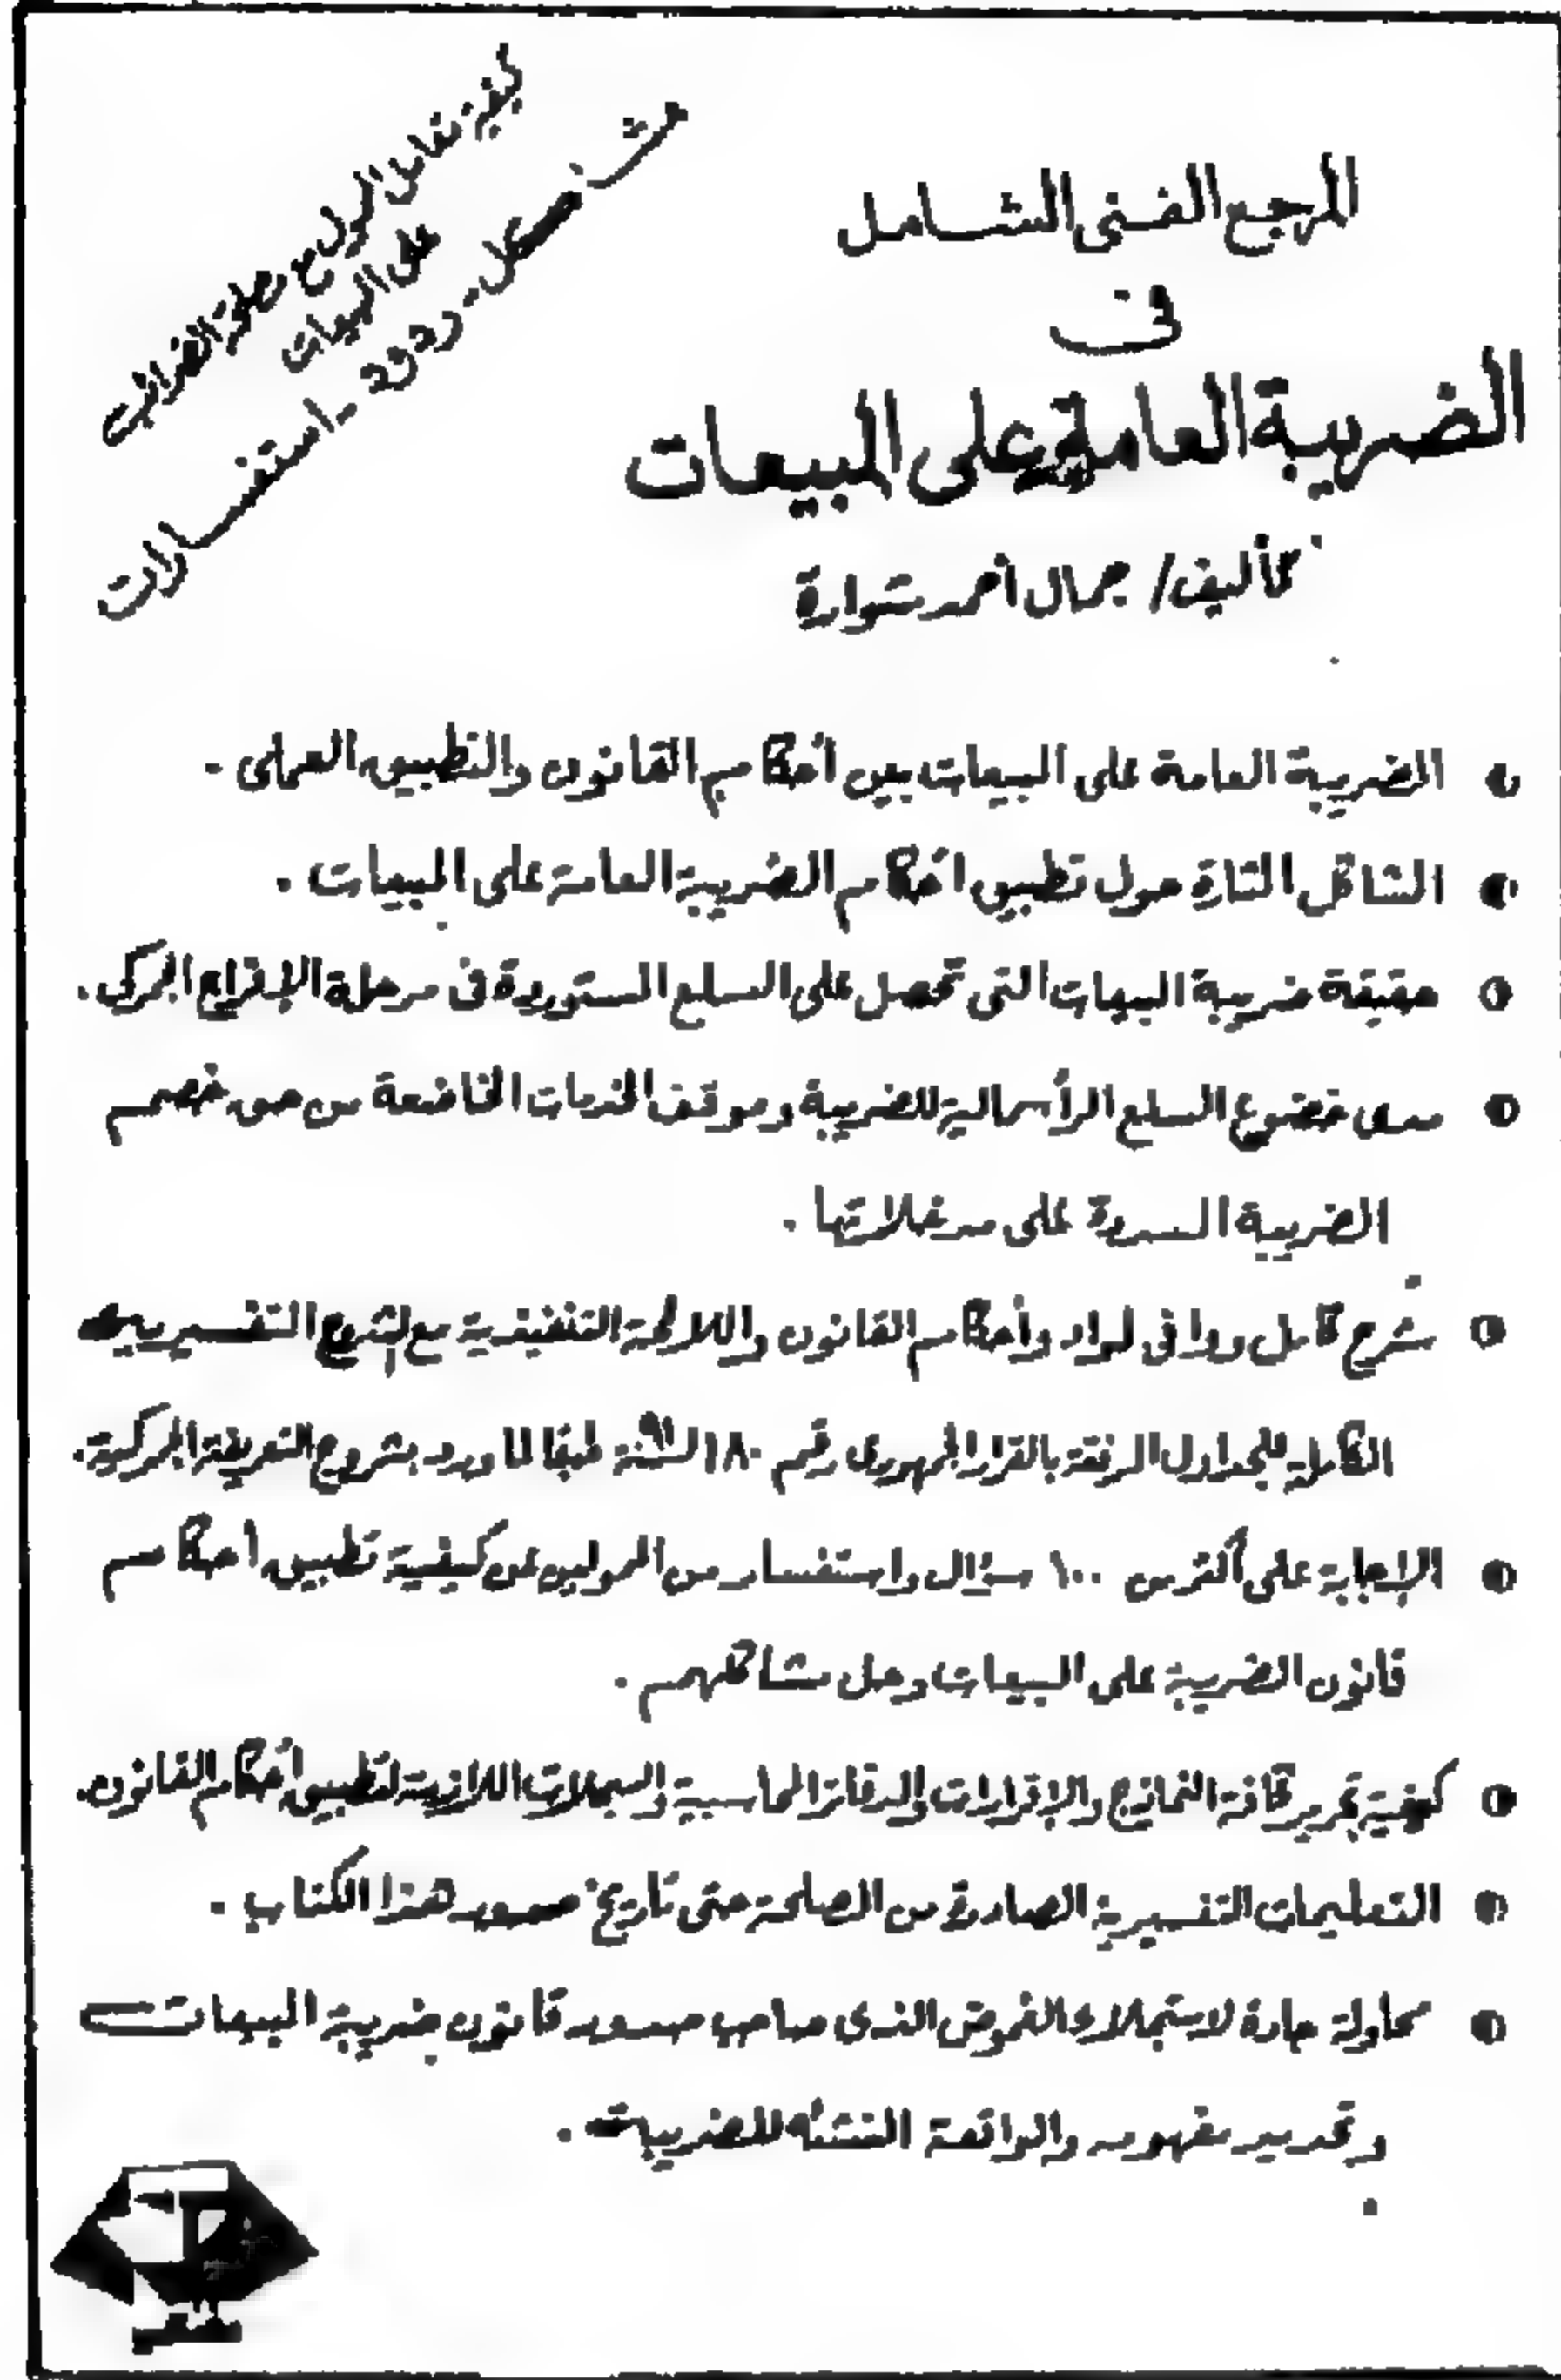 المرجع الفنى الشامل
فى
الضريبة العامة على المبيعات
تأليف/ جمال أحمد شوارة
كيفية تعامل الممول مع مصلحة الضرائب
على المبيعات
مشاكل - ردود - استفسارات
الضريبة العامة على المبيعات بين أحكام القانون والتطبيق العملى .
المشاكل المثارة حول تطبيق أحكام الضريبة العامة على المبيعات .
حقيقة ضريبة المبيعات التى تحصل على السلع المستوردة فى مرحلة الإفراج الجمركى .
مدى خضوع السلع الرأسمالية للضريبة وموقف الخدمات الخاضعة من حق خصم
الضريبة المسددة على مدخلاتها .
شرح كامل ووافى لمواد وأحكام القانون واللائحة التنفيذية مع الشروح التفسيرية
الكاملة للجداول المرفقة بالقرار الجمهورى رقم ١٨٠ لسنة ٩١ طبقا لما ورد بشروح التعريفة الجمركية .
الإجابة على أكثر من ١٠٠ سؤال واستفسار من الممولين عن كيفية تطبيق أحكام
قانون الضريبة على المبيعات وحل مشاكلهم .
كيفية تحرير كافة النماذج والإقرارات والدفاتر المحاسبية والسجلات اللازمة لتطبيق أحكام القانون .
التعليمات التفسيرية الصادرة من المصلحة حتى تاريخ صدور هذا الكتاب .
محاولة جادة لاستجلاء الغموض الذى صاحب صدور قانون ضريبة المبيعات
وتحديد مفهومه والواقعة المنشئه للضريبة .